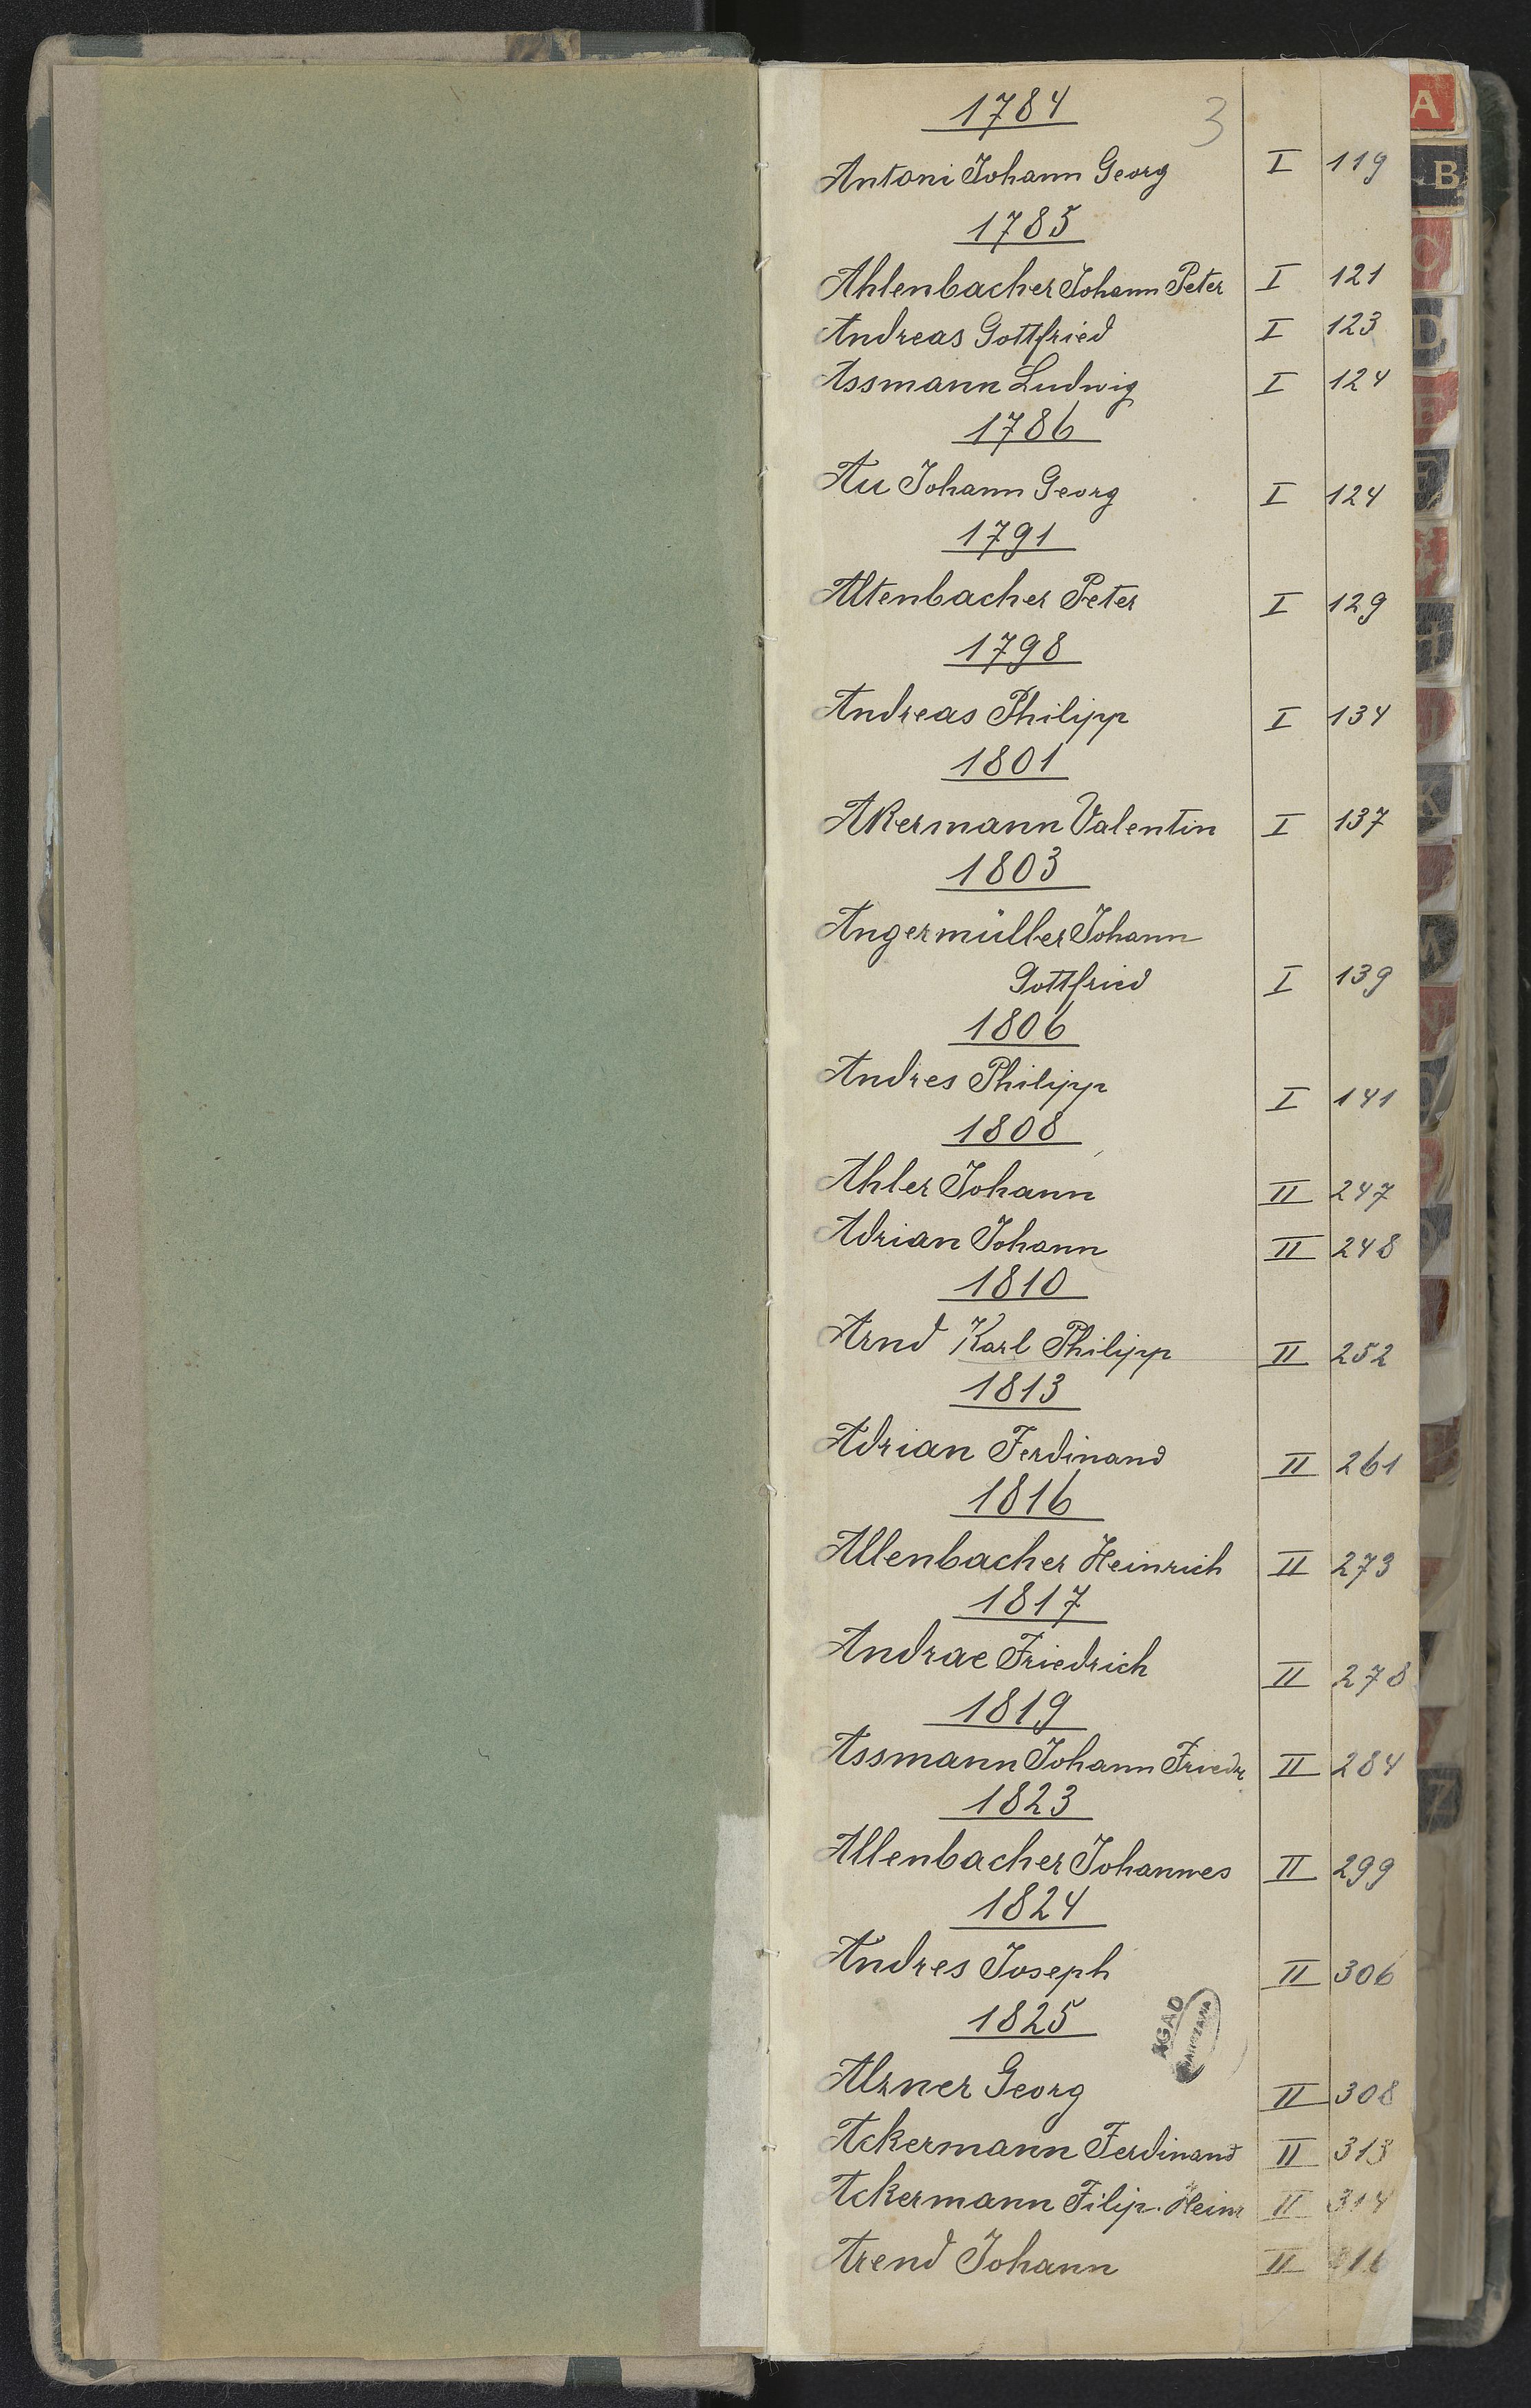 1784
3
Antoni Johann Georg I 119
1785
Ahlenbacher Johann Peter I 121
Andreas Gottfried I 123
Assmann Ludwig I 124
1786
Au Johann Georg I 124
1791
Altenbacher Peter I 129
1798
Andreas Philipp I 134
1801
AKermann Valentin I 137
1803
Angermüller Johann
Gottfried I 139
1806
Andres Philipp I 141
1808
Ahler Johann II 247
Adrian Johann II 248
1810
Arnd Karl Philipp II 252
1813
Adrian Ferdinand II 261
1816
Allenbacher Heinrich II 273
1817
Andrae Friedrich II 278
1819
Assmann Johann Friedr II 284
1823
Allenbacher Johannes II 299
1824
Andres Joseph II 306
1825
AGAD
Alzner Georg II 308
Ackermann Ferdinand II 313
Ackermann Filip. Heinr II 314
Arend Johann II 316
A
B
C
D
E
F
H
K
Z